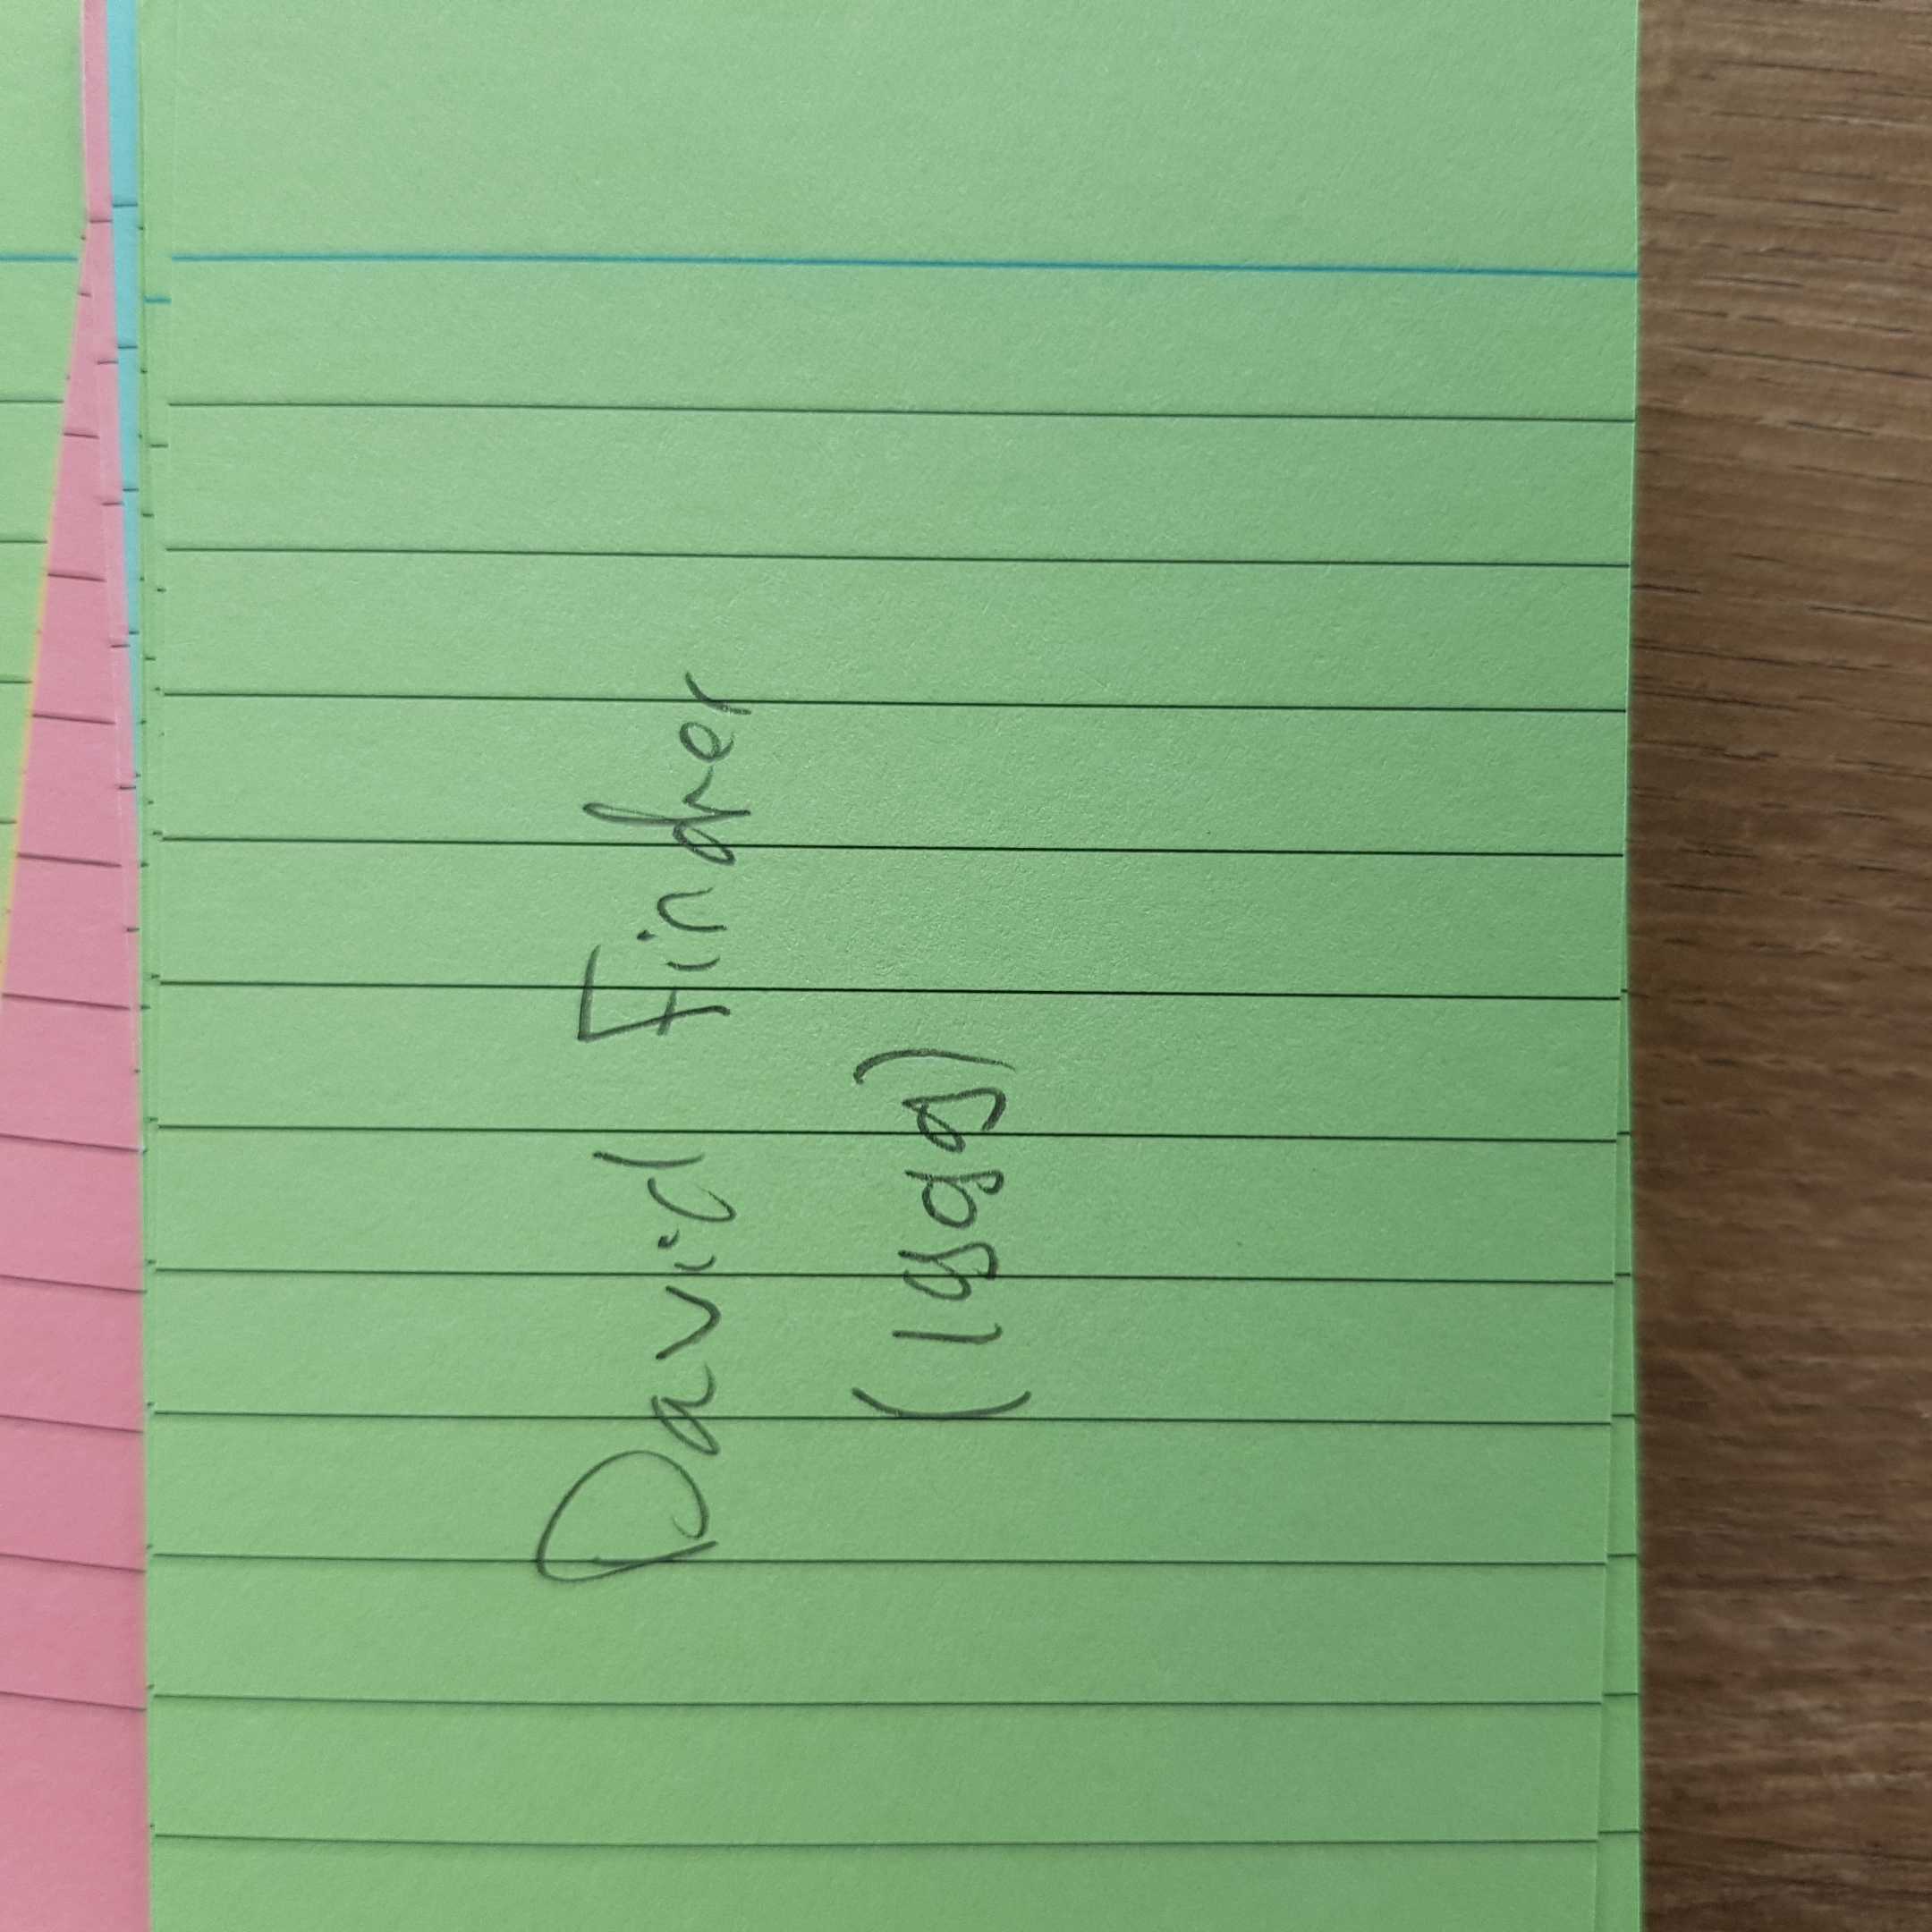 David Fincher
(1999)